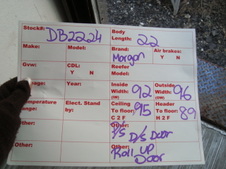 Stock#: DB2224 Body Length: 22
Make: Model: Brand: Morgan Air brakes: Y N
Gvw: CDL: Y N Reefer Model:
Year: Inside Width: (W) 92 Outside Width: (W) 96
Temperature Elect. Stand by: Ceiling To floor: C 2 F 95 Header To floor: H 2 F 89
Other: Other: S/S D/S Door
Other: Other: Roll up Door